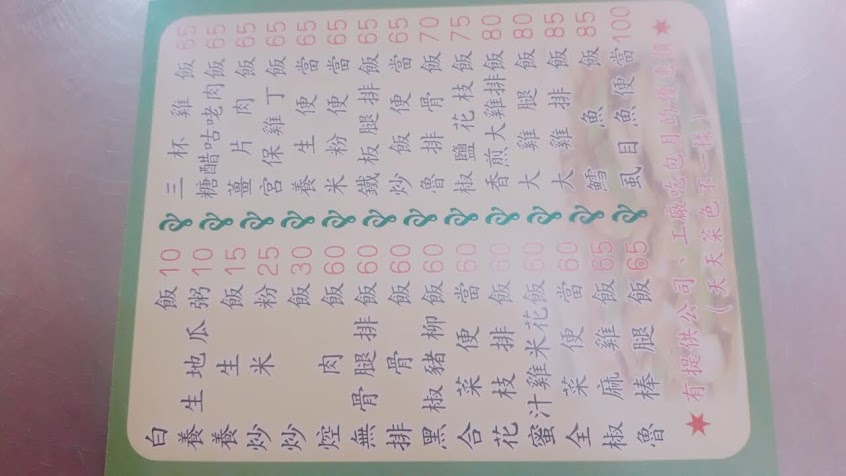 白飯 10
養生地瓜粥 10
養生飯 15
炒米粉 25
炒飯 30
焢肉飯 60
無骨腿排飯 60
排骨飯 60
黑椒豬柳飯 60
合菜便當 60
花枝排飯 60
蜜汁雞米花飯 60
全菜便當 60
椒麻雞飯 65
魯棒腿飯 65
三杯雞飯 65
糖醋咕咾肉飯 65
薑片肉飯 65
宮保雞丁飯 65
養生便當 65
米粉便當 65
鐵板腿排飯 65
炒飯便當 65
魯排骨飯 70
椒鹽花枝飯 75
香煎大雞排飯 80
大雞腿飯 80
大雞排飯 85
鱈魚飯 85
虱目魚便當 100
★有提供公司、工廠吃包月的★
(天天菜色不一樣)